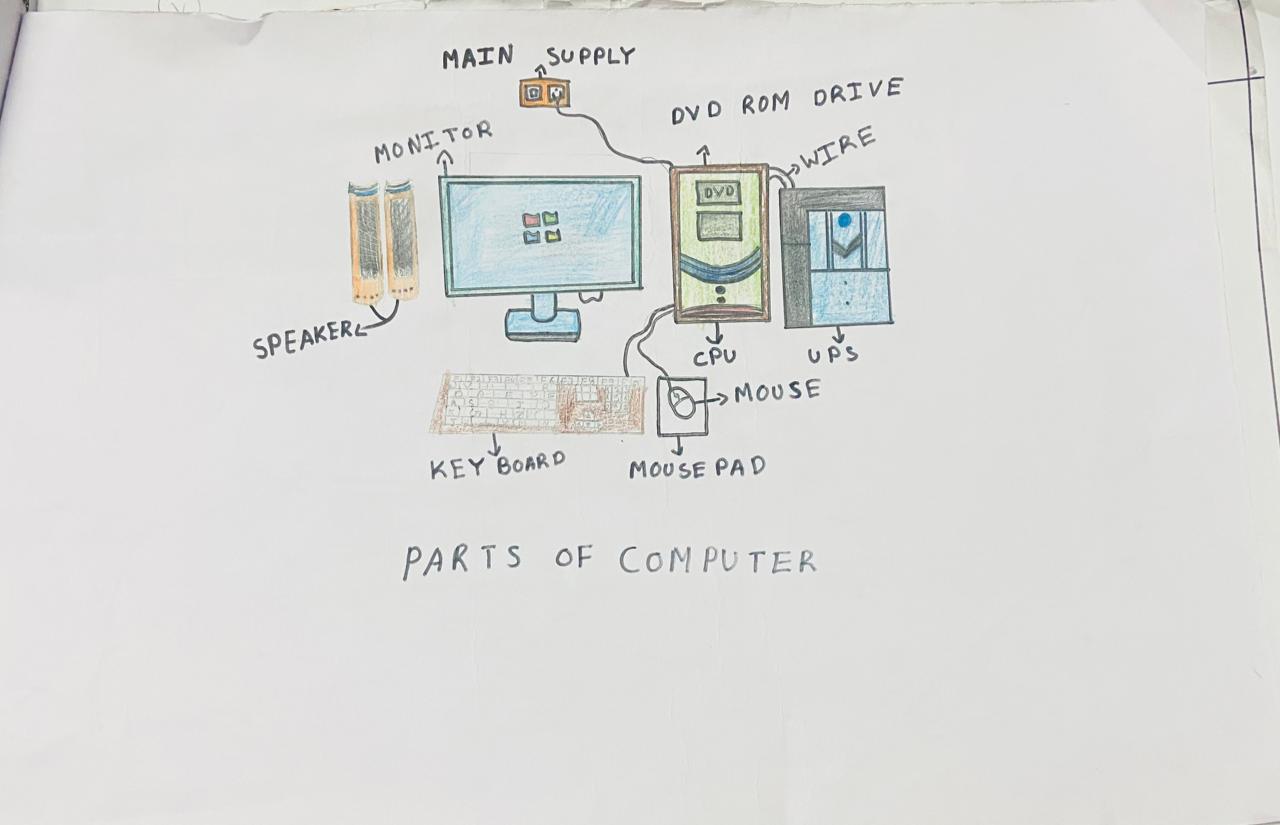 MAIN SUPPLY
DVD ROM DRIVE
MONITOR
WIRE
DVD
SPEAKER
CPU
UPS
MOUSE
KEY BOARD
MOUSE PAD
PARTS OF COMPUTER